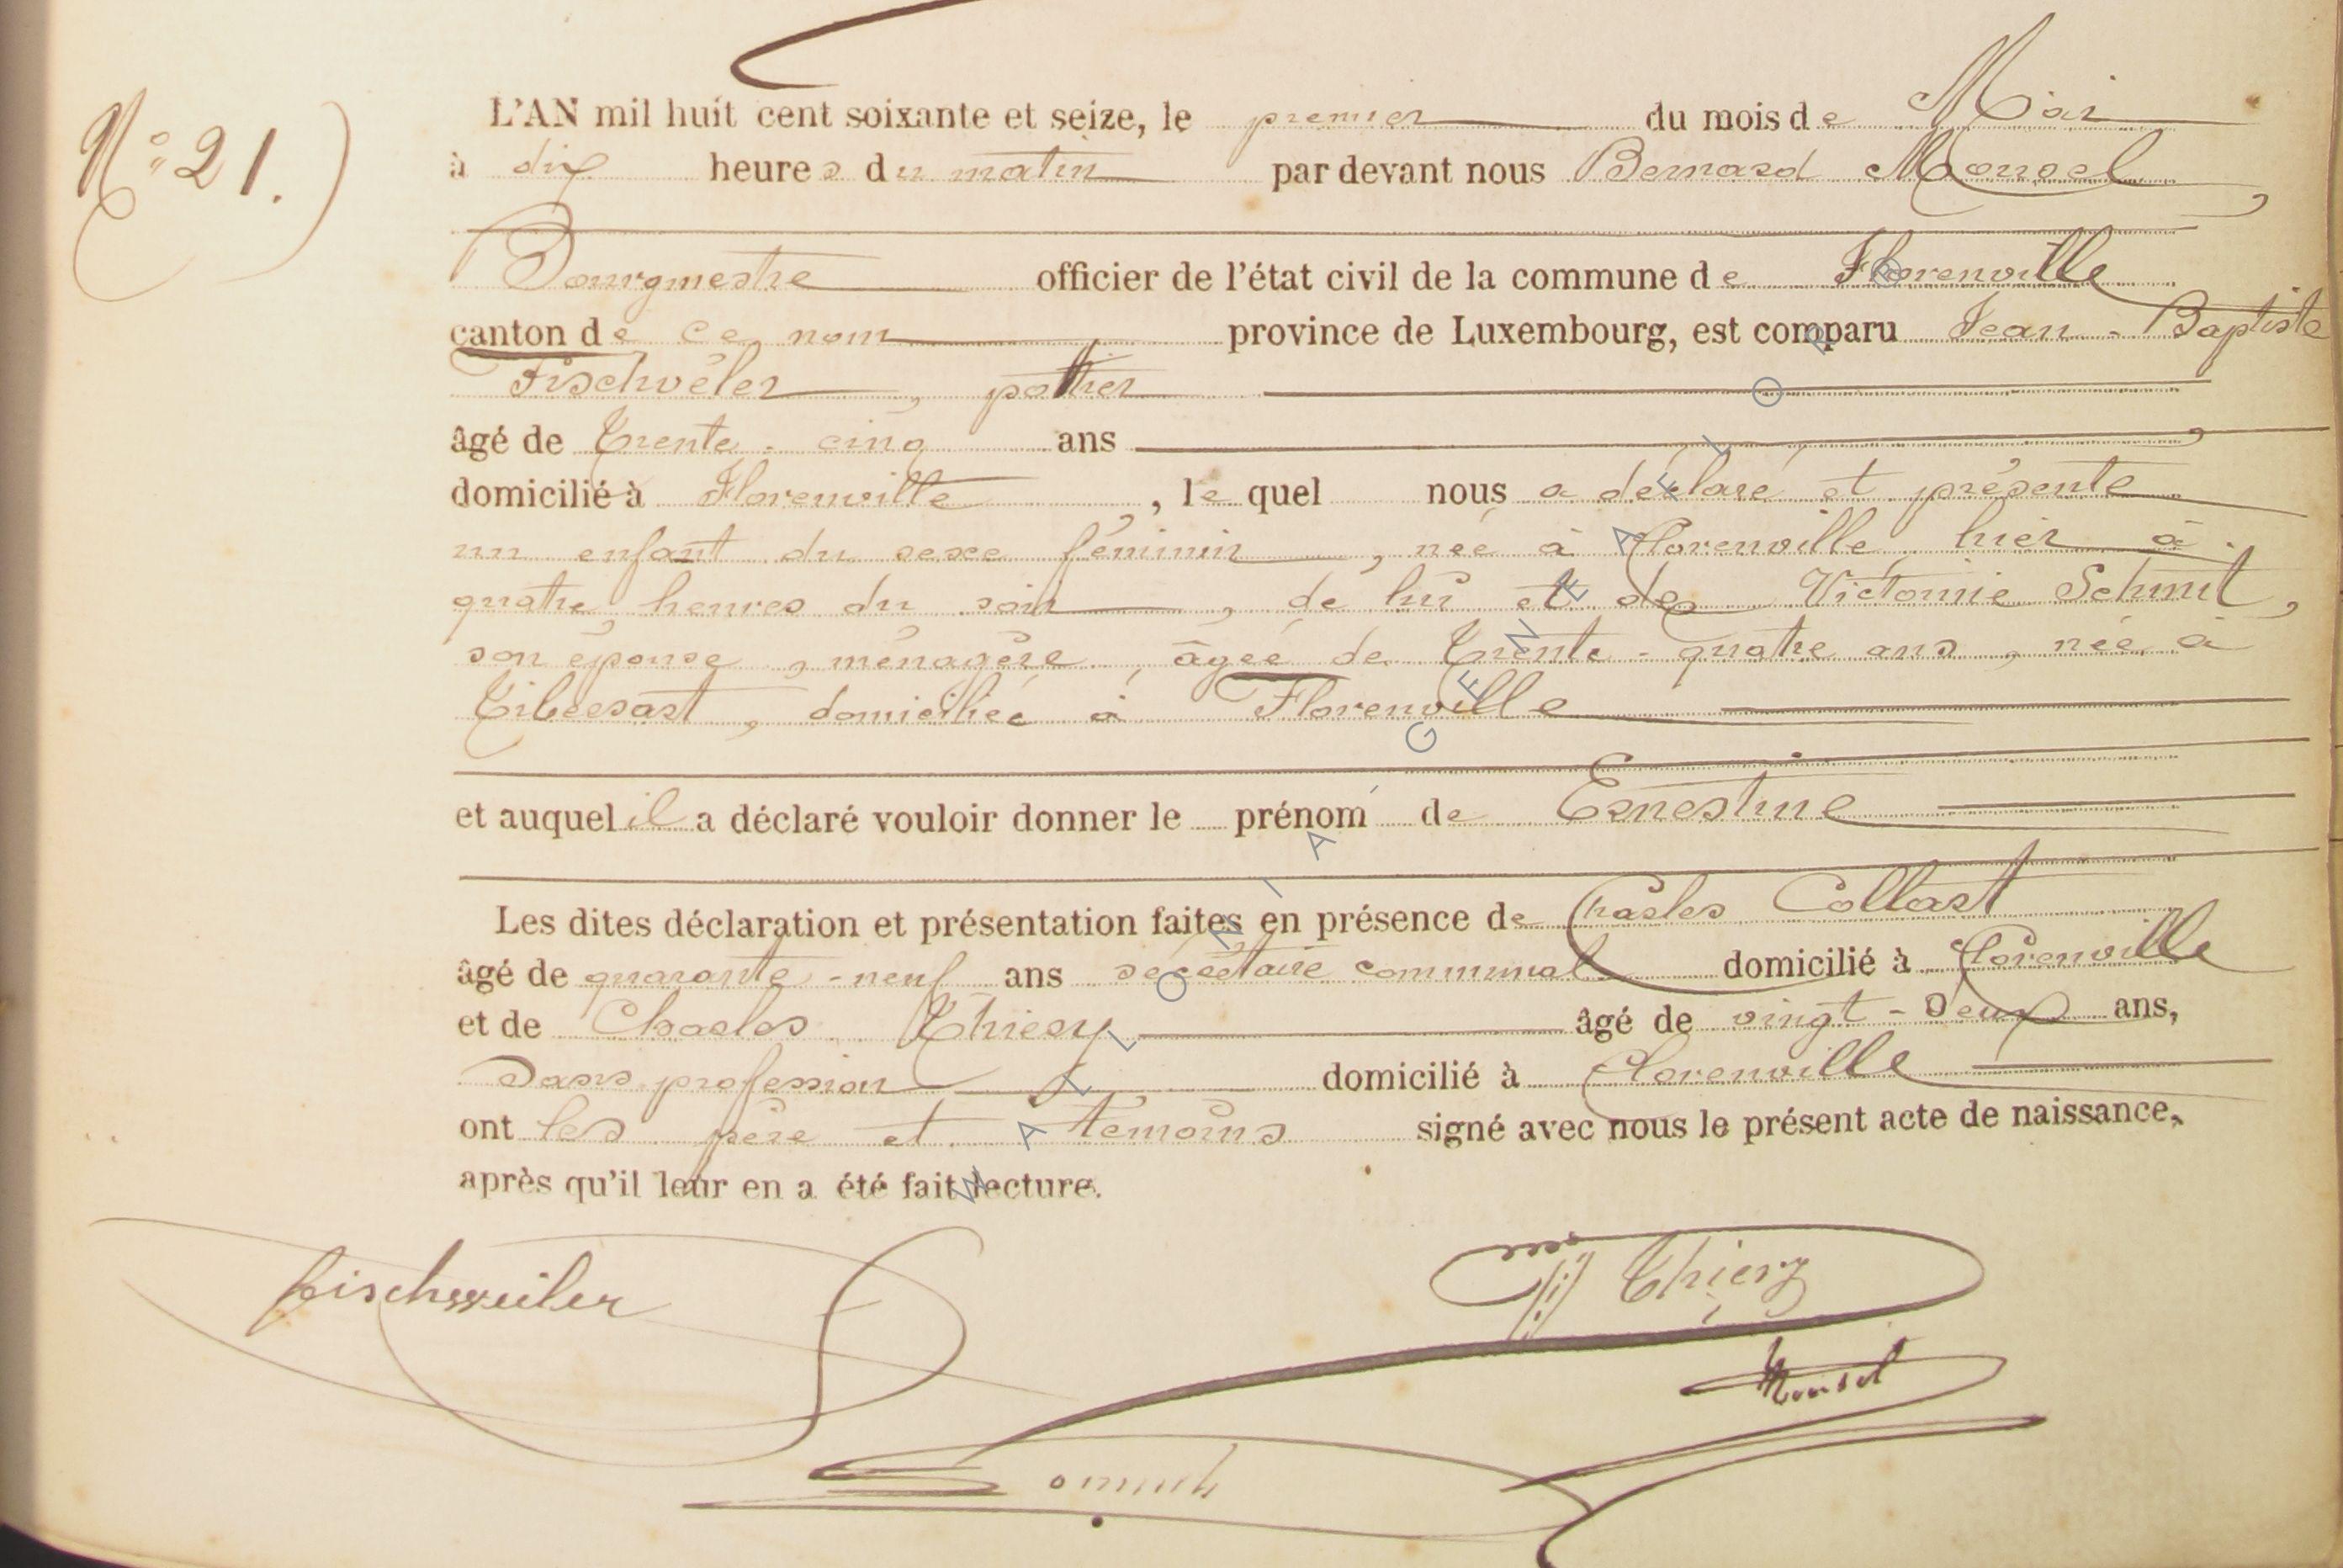 N° 21.
L'AN mil huit cent soixante et seize, le premier du mois de Mai
à dix heures du matin par devant nous Bernard Monsel,
Bourgmestre officier de l'état civil de la commune de Florenville
canton de ce nom province de Luxembourg, est comparu Jean-Baptiste
Fischvéler, potier
âgé de Trente-cinq ans,
domicilié à Florenville, le quel nous a déclaré et présenté
un enfant du sexe féminin, née à Florenville, hier à
quatre heures du soir, de lui et de Victorine Schmit,
son épouse, ménagère, âgée de Trente-quatre ans, née à
domiciliée à Florenville
et auquel il a déclaré vouloir donner le prénom de Ernestine
Les dites déclaration et présentation faites en présence de Charles Collart
âgé de quarante-neuf ans secrétaire communal domicilié à Florenville
et de Charles Thiery âgé de vingt-deux ans,
sans profession domicilié à Florenville
ont les père et témoins signé avec nous le présent acte de naissance,
après qu'il leur en a été fait lecture.
fischweiler
Thiery
Monsel
WALLONIA GENEAFELIOPO